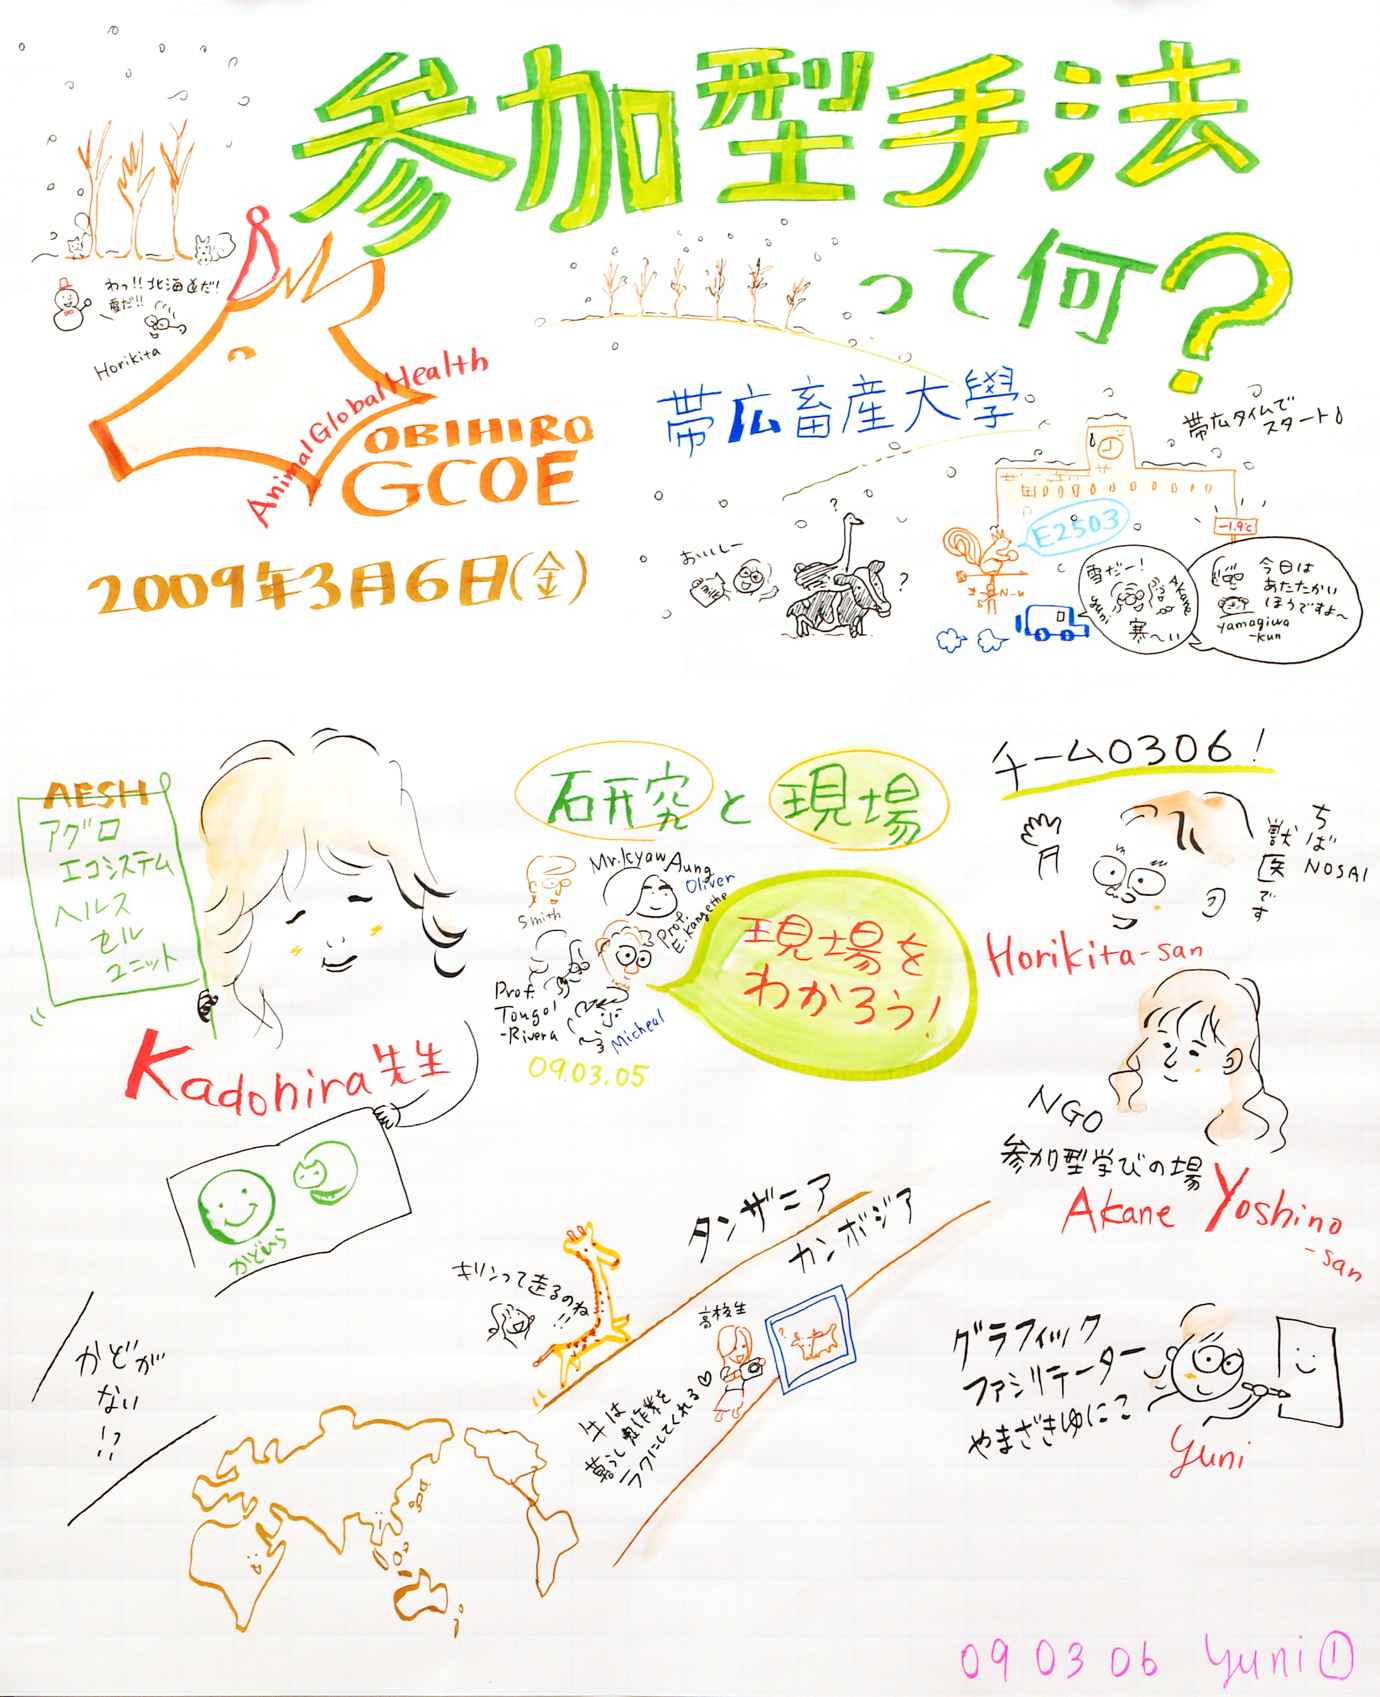 参加型手法
って何?
わっ!!北海道だ!
雪だ!!
Horikita
Animal Global Health
OBIHIRO
GCOE
2009年3月6日(金)
帯広畜産大學
帯広タイムで
スタート
おいしー
milk
?
?
E2503
-1.9℃
N
雪だー!
yuni
Akane
寒〜い
今日は
あたたかい
ほうですよ〜
yamagiwa
-kun
AESH
アグロ
エコシステム
ヘルス
セル
ユニット
Kadohira先生
かどひら
研究と現場
Smith
Mr.Kyaw Aung
Oliver
Prof.
E.Kangethe
Prof.
Tongol
-Rivera
Micheal
09.03.05
現場を
わかろう!
チーム0306!
ちば
NOSAI
獣医です
Horikita-san
NGO
参加型学びの場
Akane Yoshino
-san
グラフィック
ファシリテーター
やまざきゆにこ
yuni
タンザニア
カンボジア
キリンって走るのね!!
高校生
牛は
農作業を
暮らし
ラクにしてくれる♡
かどが
ない
!?
09 03 06 yuni①